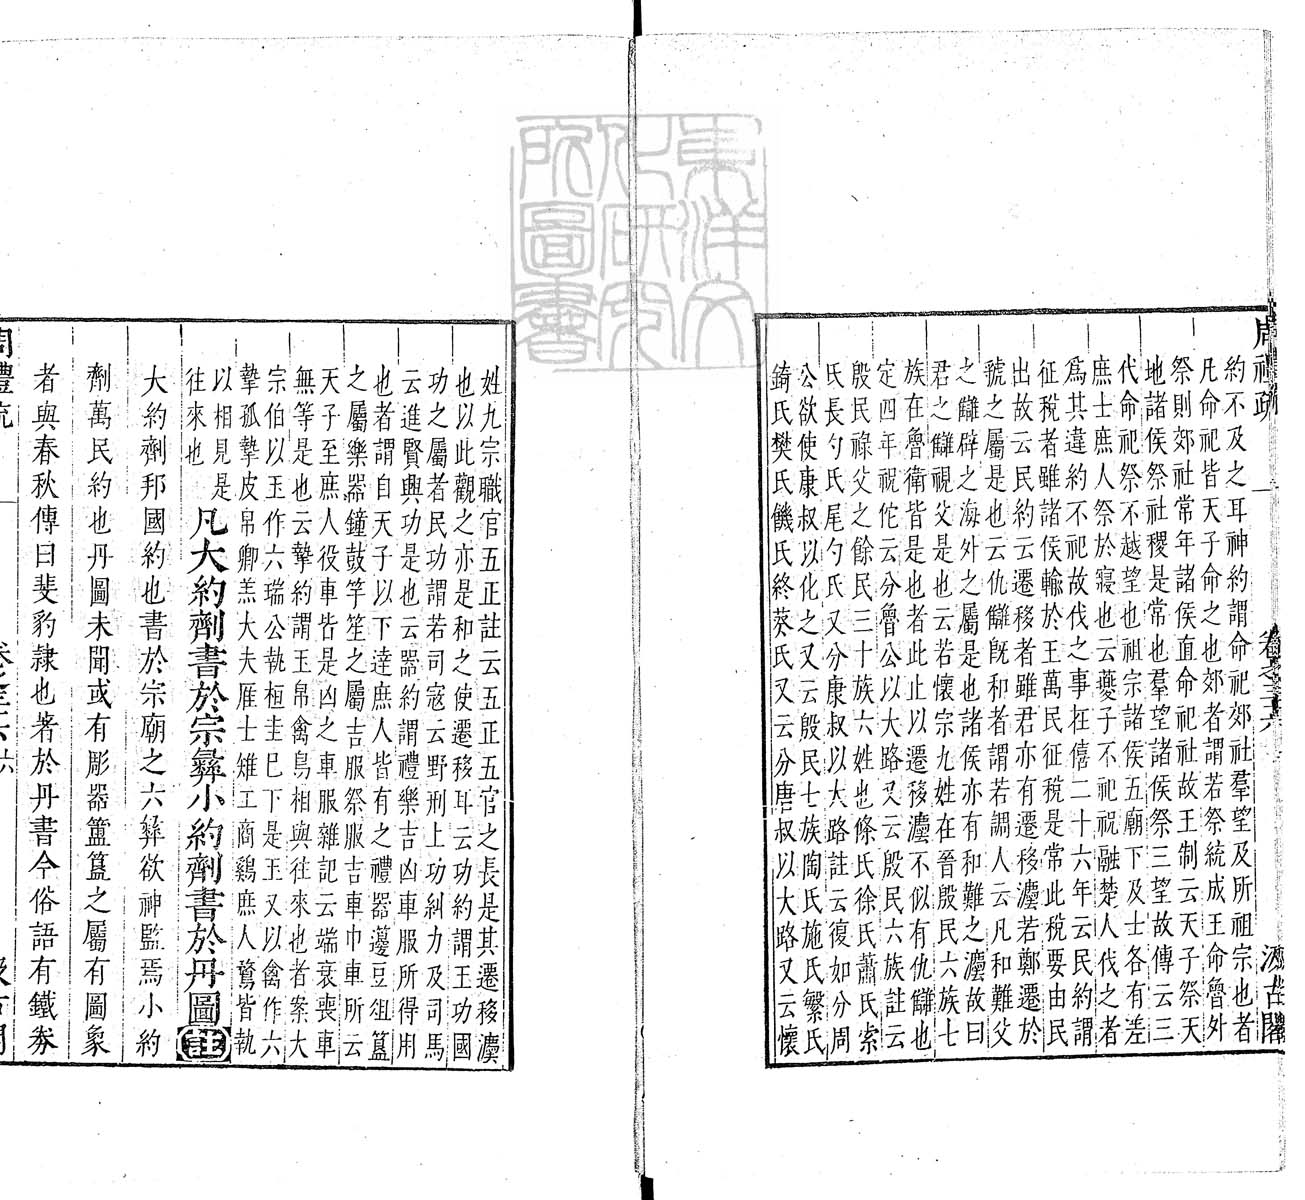 周禮疏 卷之三十六 汲古閣
約不及之耳神約謂命祀郊社羣望及所祖宗也者
凡命祀皆天子命之也郊者謂若祭統成王命魯外
祭則郊社常年諸侯直命祀社故王制云天子祭天
地諸侯祭社稷是常也羣望諸侯祭三望故傳云三
代命祀祭不越望也祖宗諸侯五廟下及士各有差
庶士庶人祭於寢也云夔子不祀祝融楚人伐之者
為其違約不祀故伐之事在僖二十六年云民約謂
征稅者雖諸侯輸於王萬民征稅是常此稅要由民
出故云民約云遷移者雖君亦有遷移灋若鄭遷於
虢之屬是也云仇讎旣和者謂若調人云凡和難父
之讎辟之海外之屬是也諸侯亦有和難之灋故曰
君之讎視父是也云若懷宗九姓在晉殷民六族七
族在魯衛皆是也者此止以遷移灋不似有仇讎也
定四年祝佗云分魯公以大路又云殷民六族註云
殷民祿父之餘民三十族六姓也條氏徐氏蕭氏索
氏長勺氏尾勺氏又分康叔以大路註云復如分周
公欲使康叔以化之又云殷民士族陶氏施氏繁氏
錡氏樊氏饑氏終葵氏又云分唐叔以大路又云懷
姓九宗職官五正註云五正五官之長是其遷移灋
也以此觀之亦是和之使遷移耳云功約謂王功國
功之屬者民功謂若司寇云野刑上功糾力及司馬
云進賢興功是也云器約謂禮樂吉凶車服所得用
也者謂自天子以下達庶人皆有之禮器籩豆俎簋
之屬樂器鐘鼓竽笙之屬吉服祭服吉車巾車所云
天子至庶人役車皆是凶之車服雜記云端衰喪車
無等是也云摯約謂玉帛禽鳥相與往來也者案大
宗伯以玉作六瑞公執桓圭巳下是玉又以禽作六
摯孤摯皮帛卿羔大夫雁士雉工商鷄庶人鶩皆執
以相見是往來也
凡大約劑書於宗彝小約劑書於丹圖 註
大約劑邦國約也書於宗廟之六彝欲神監焉小約
劑萬民約也丹圖未聞或有彫器簠簋之屬有圖象
者與春秋傳曰斐豹隸也著於丹書今俗語有鐵券